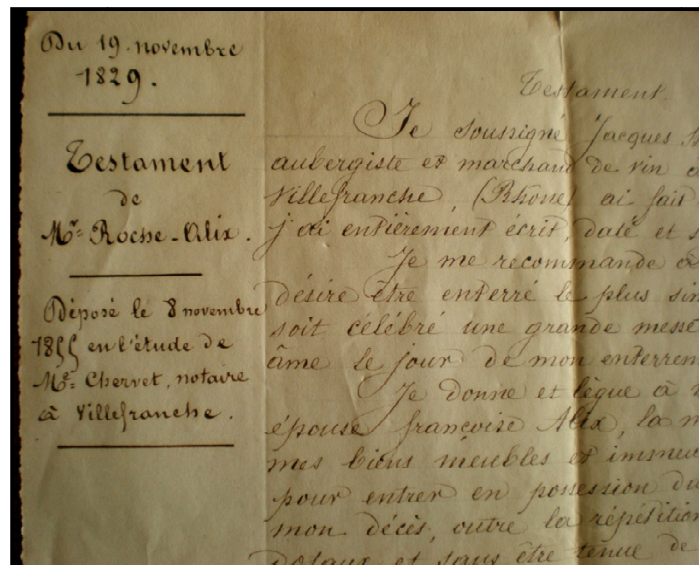 Du 19. novembre
1829.
Testament
de
Mr. Roche-Alix.
Déposé le 8 novembre
1855 en l'étude de
Me. Chervet, notaire
à Villefranche.
Testament.
Je soussigné Jacques
aubergiste et marchand de vin
Villefranche, (Rhone) ai fait
j'ai entièrement écrit, daté et
Je me recommande à
désire être enterré le plus
soit célébré une grande messe
âme le jour de mon
Je donne et lègue à
épouse françoise Alix, la
mes biens meubles et
pour entrer en possession du
mon décès, outre la répétition
dotaux et sans être tenue de